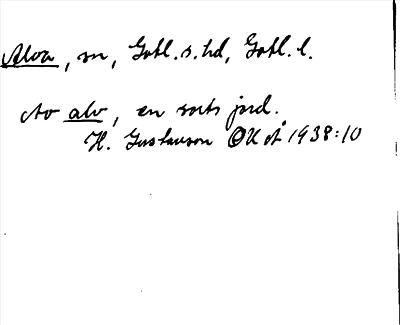 Alva, sn, Gotl. s. hd, Gotl. l.
Av alv, en sorts jord.
H. Gustavson OUÅ 1938:10